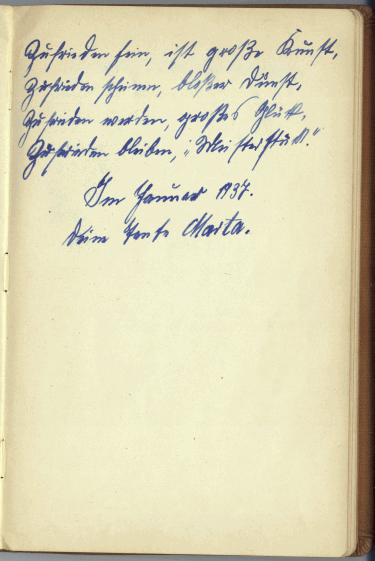 Zufrieden sein, ist große Kunst,
Zufrieden scheinen, bloßer Dunst,
Zufrieden werden, großes Glück,
Zufrieden bleiben, „Meisterstück."
Im Januar 1937.
Deine Tante Marta.